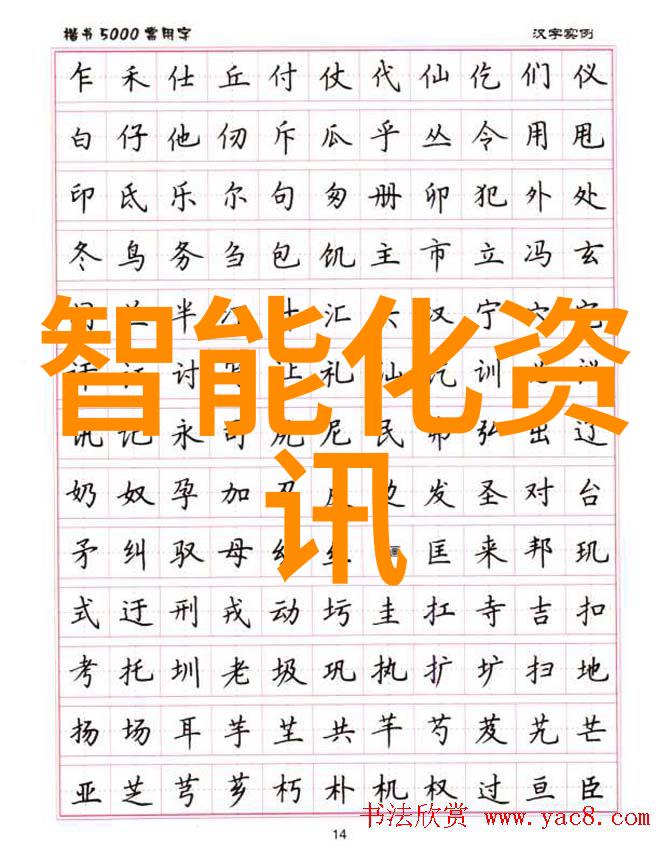 楷书5000常用字 汉字实例
乍禾仕丘付仗代仙仡们仪
白仔他仞斥瓜乎丛令用甩
印氐乐尔句匆册卯犯外处
冬鸟务刍包饥主市立冯玄
半 汇 汉宁穴它
讨 礼 训
讯记永司 尼民 弘出辽
奶奴孕加 发圣对台
矛纠驭母 匡来邦玑
式迂刑戎动圬圭扛寺吉扣
考托圳老圾巩执扩圹扫地
扬场耳芋芏共芊芍芨艽芒
亚芝芎芗朽朴机权过亘臣
智能化资
讯
书法欣赏 www.yac8.com
14